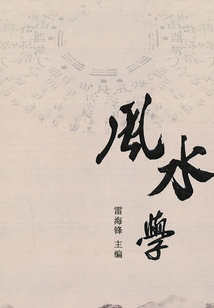 風水學
雷海锋 主编